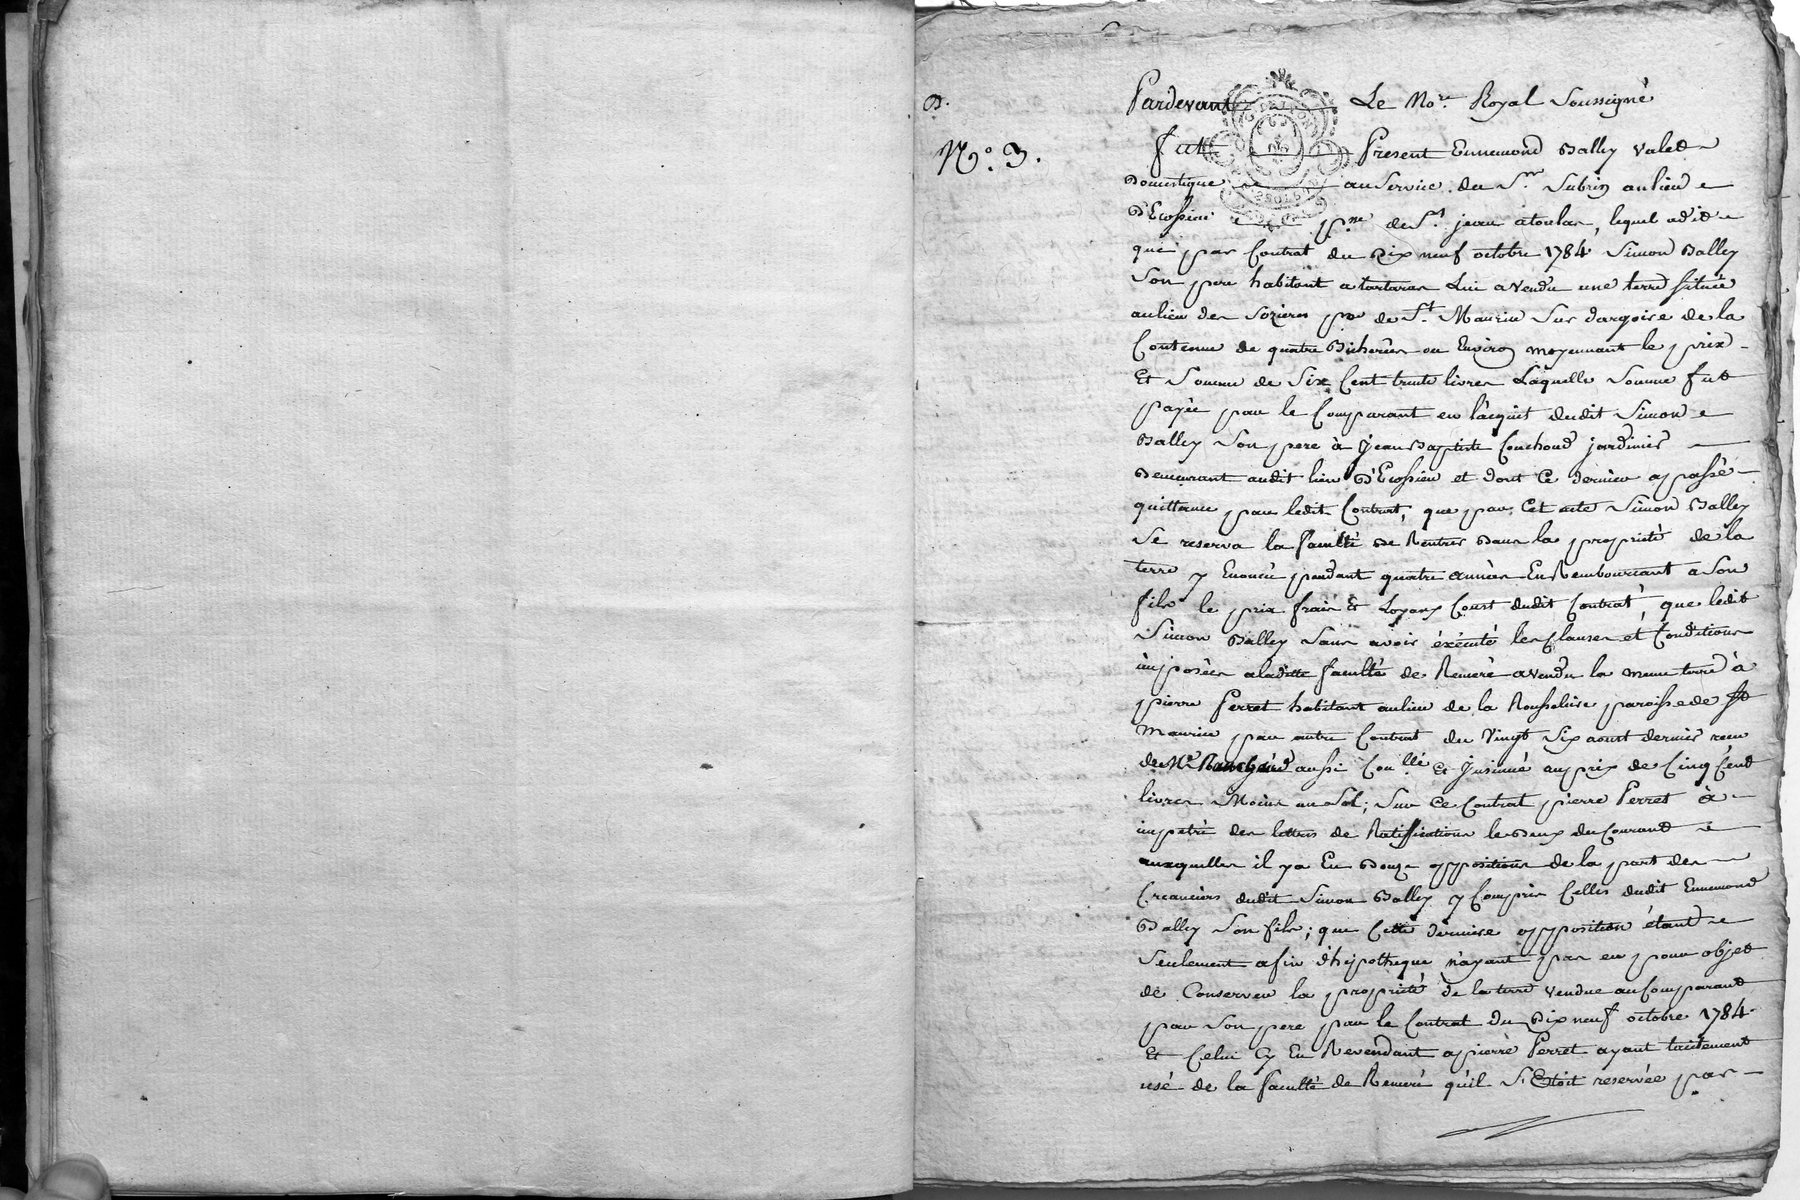 B.
N.° 3.
Pardevant Le No.re Royal Soussigné
fut Present Ennemond Balley valet
Domestique au Service du S.r Subrin au lieu
D'Ecossieu p.sse de S.t jean atoulas, lequel adit
que par Contrat du Dix neuf octobre 1784 Simon Balley
Son pere habitant a tartaras Lui a Vendu une terre située
au lieu des p.sse de S.t Maurice Sur dargoire de la
Contenue de quatre Bicherées ou Environ moyennant le prix
Et Somme de Six Cent trente livres Laquelle Somme fut
payée par le Comparant en l'acquit dudit Simon
Balley Son pere à Jean Baptiste Couchoud jardinier
Demeurant audit lieu D'Ecossieu et dont Ce dernier a passé
quittance par ledit Contrat, que par Cet acte Simon Balley
Se reserva la faculté De Rentrer Dans la proprieté de la
terre y Enoncée pendant quatre années En Remboursant a Son
fils le prix frais Et Loyaux Coust dudit Contrat, que ledit
Simon Balley Sans avoir éxécuté les Clauses et Conditions
imposées a ladite faculté de Remeré a vendu la meme terre à
pierre Perret habitant au lieu de la Rousseliere paroisse de St
Maurice par autre Contrat du Vingt Six aoust dernier recu
de M.e aussi Con.llé Et Jnsinué au prix de Cinq Cent
livres Moins un Sol; Sur Ce Contrat pierre Perret à
impetré des lettres de Ratifications le Deux du Courant
auxquelles il y a Eu Douze oppositions de la part des
Creanciers dudit Simon Balley y Compris Celles dudit Ennemond
Balley Son fils; que Cette derniere opposition étant
Seulement afin d'hipotheque n'ayant pas eu pour objet
de Conserver la proprieté de la terre vendue au Comparant
par Son pere par le Contrat du Dix neuf octobre 1784
Et Celui Cy En Revendant a pierre Perret ayant tacitement
usé de la faculté de Remeré qu'il S'Etoit reservée par